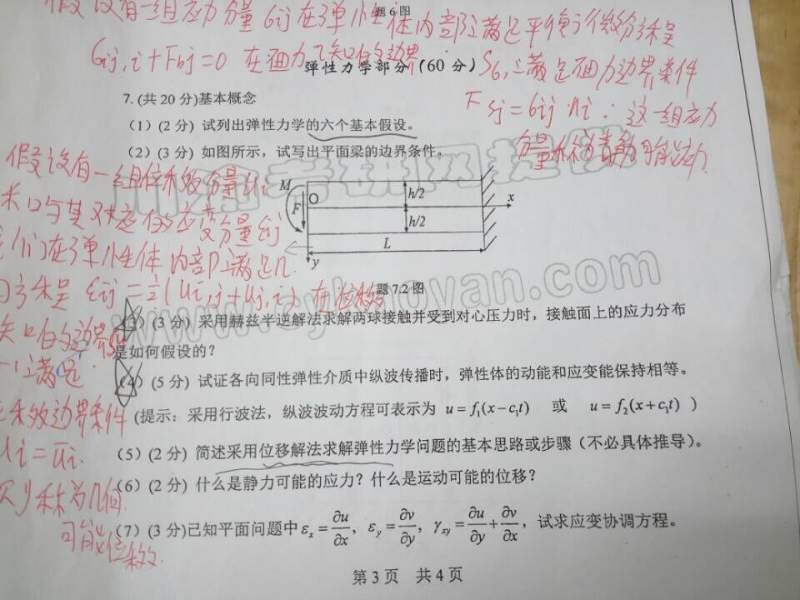 假设有一组应力分量 σij 在弹性体内部满足平衡微分方程
题6图
σij,i + Fbj = 0 在面力已知的边界
弹性力学部分（60 分）
Sσ上满足面力边界条件
Fsj = σij ni：这一组应力
7. (共 20 分)基本概念
（1）(2 分) 试列出弹性力学的六个基本假设。
（2）(3 分) 如图所示，试写出平面梁的边界条件。
假设有一组位移分量 ui
M
O
F
h/2
h/2
x
L
y
在弹性体内部满足几
何方程 εij = ½(ui,j + uj,i) 在位移
题 7.2 图
（3）(3 分) 采用赫兹半逆解法求解两球接触并受到对心压力时，接触面上的应力分布
是如何假设的？
（4）(5 分) 试证各向同性弹性介质中纵波传播时，弹性体的动能和应变能保持相等。
(提示：采用行波法，纵波波动方程可表示为 u = f₁(x − c₁t) 或 u = f₂(x + c₁t) )
移边界条件
ui = ūi
（5）(2 分) 简述采用位移解法求解弹性力学问题的基本思路或步骤（不必具体推导）。
（6）(2 分) 什么是静力可能的应力？什么是运动可能的位移？
则称为几何
可能位移
（7）(3 分)已知平面问题中 εx = ∂u/∂x, εy = ∂v/∂y, γxy = ∂u/∂y + ∂v/∂x，试求应变协调方程。
第 3 页 共 4 页